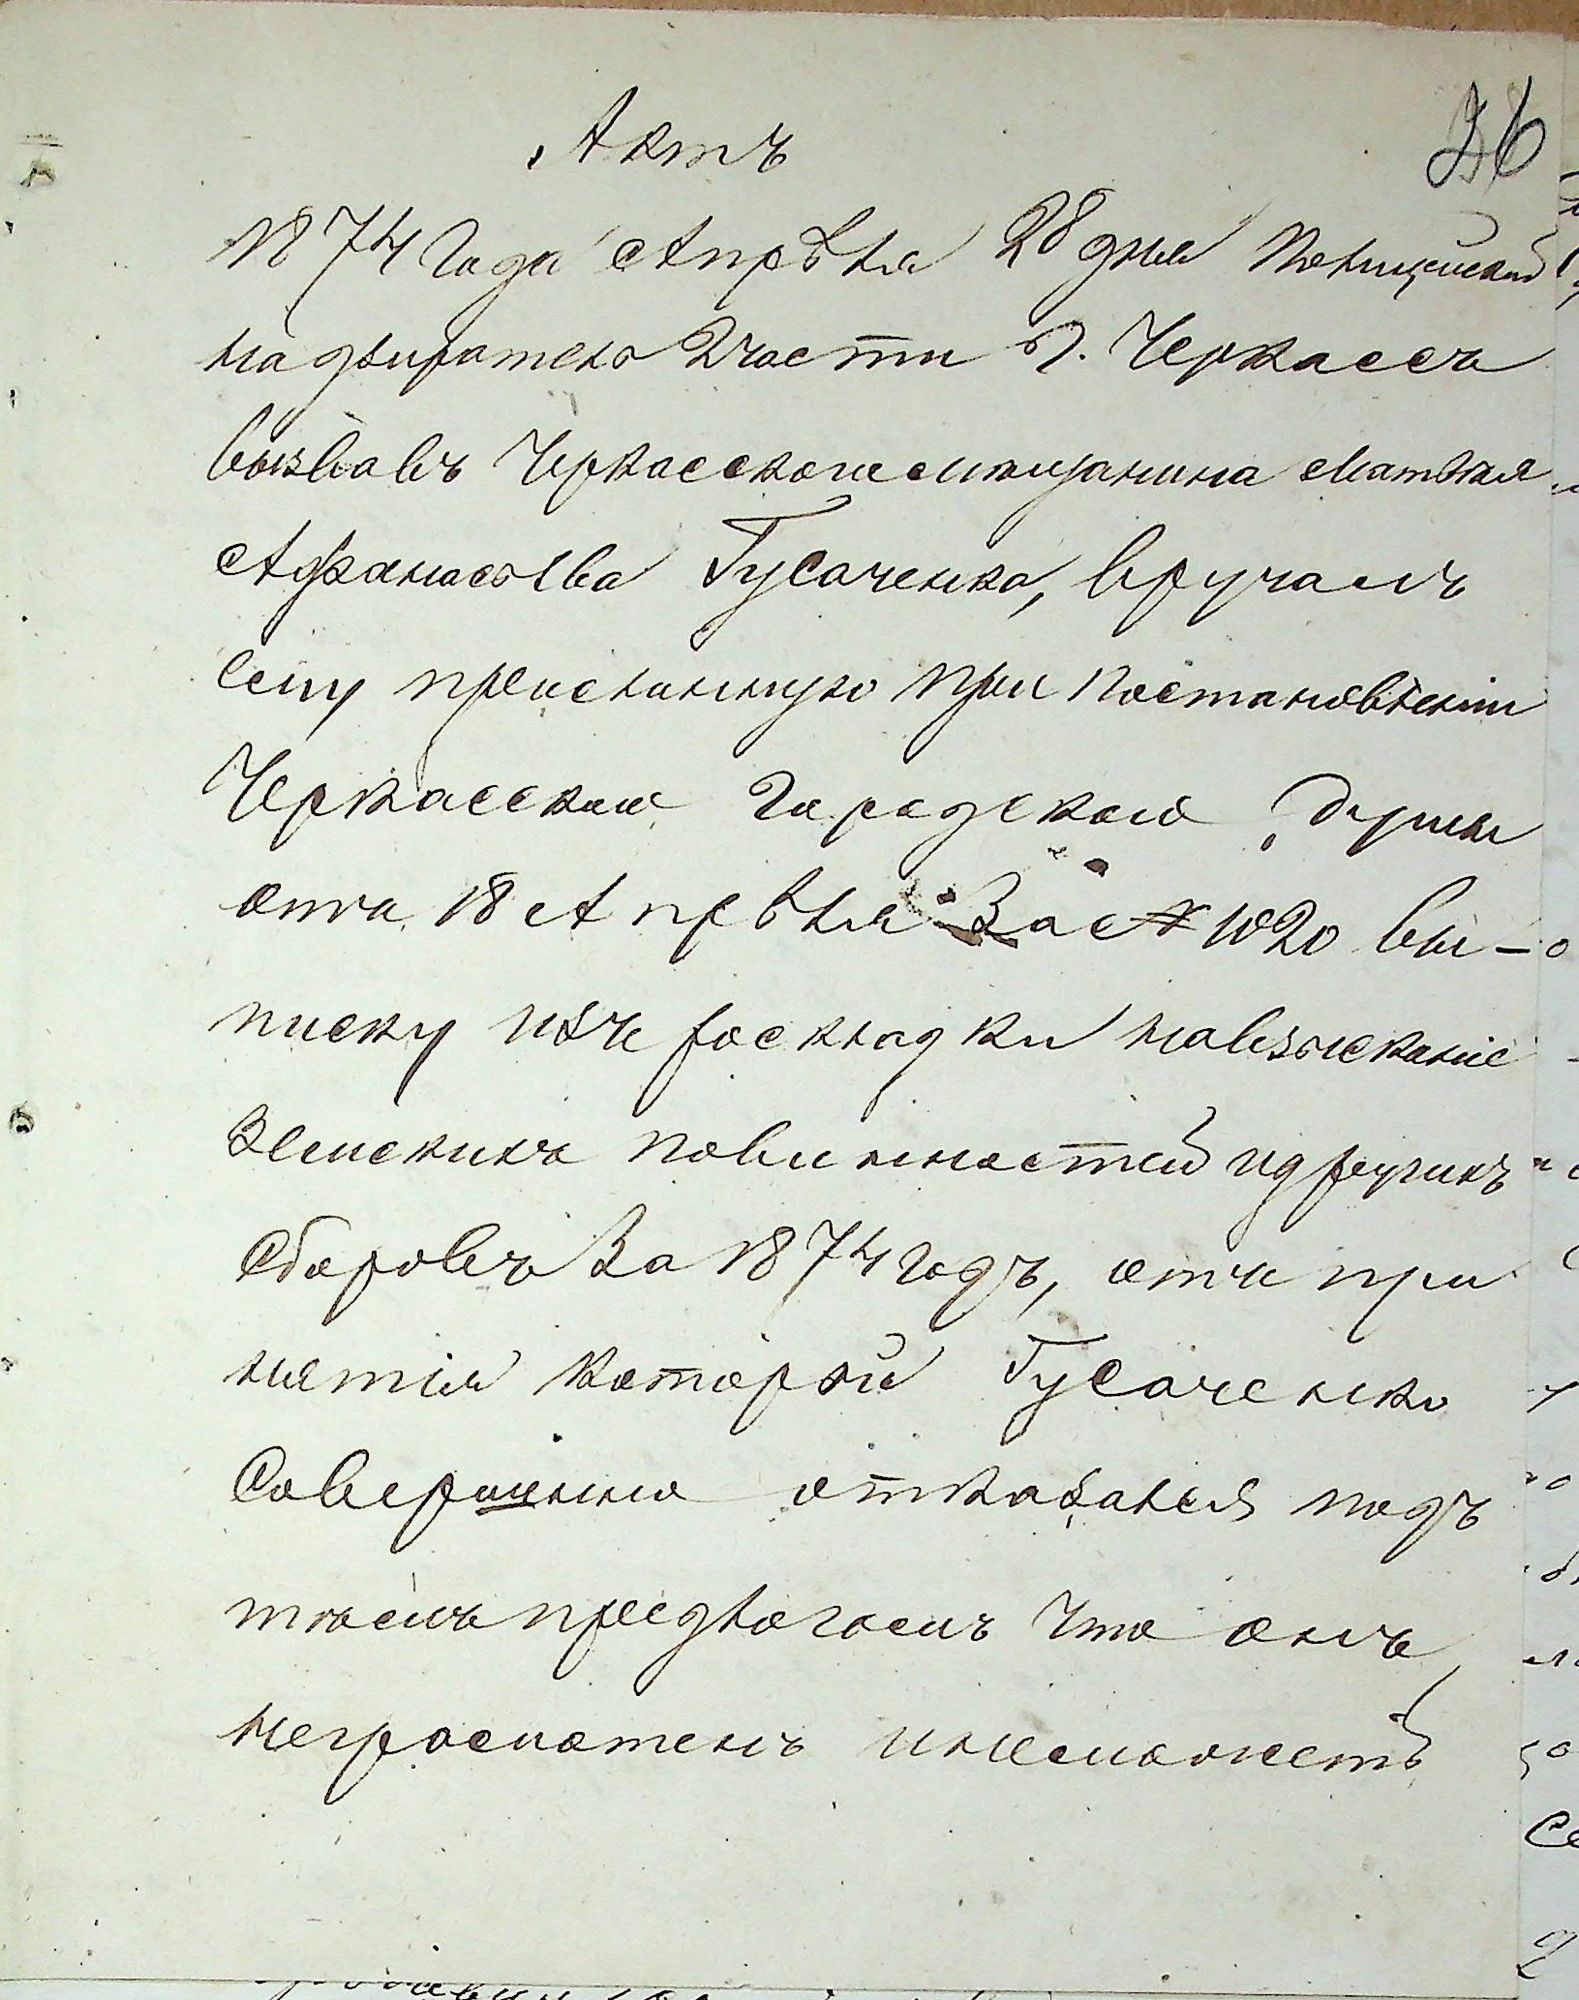 Актъ
36
1874 года Апрѣля 28 дня Полицейскій
надзиратель 2 части г. Черкассъ
вызвавъ Черкасскаго мѣщанина Матвѣя
Афанасьева Гусаченка, вручалъ
ему присланную при постановленіи
Черкасской Городской Думы
отъ 18 Апрѣля За № 1020 вы-
писку изъ роскладки на взысканіе
Земскихъ повинностей и другихъ
сборовъ За 1874 годъ, отъ при
нятія которой Гусаченко
Совершенно отказался подъ
тѣмъ предлогомъ что онъ
неграмотенъ и неможетъ